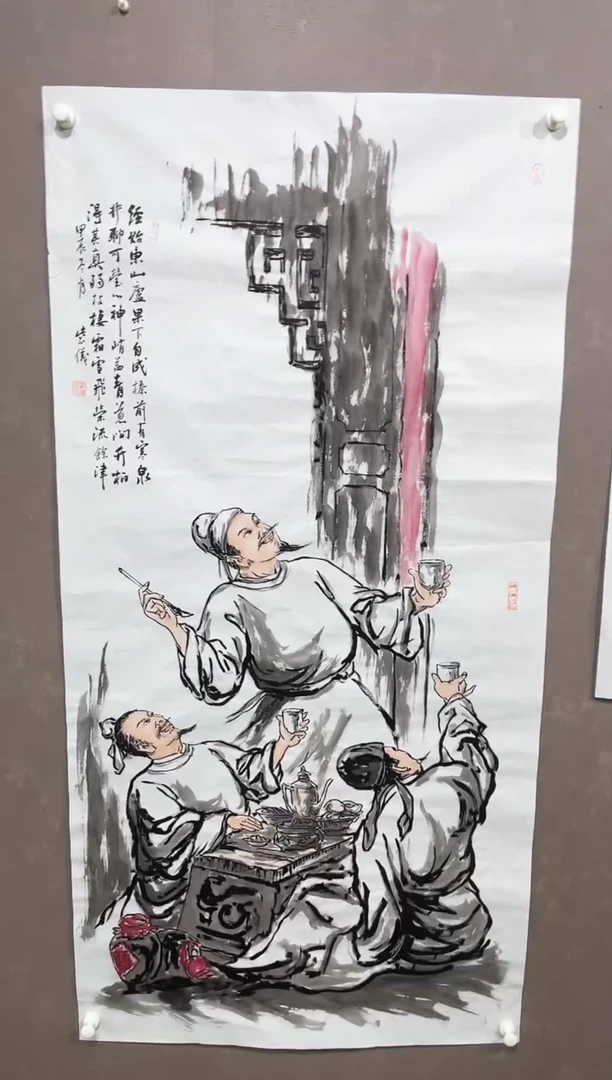 經始東山廬果下自成榛前有寒泉
井聊可瑩心神峭蒨青葱间竹柏
得其真弱枝棲霜雪飛荣流餘津
甲辰冬月